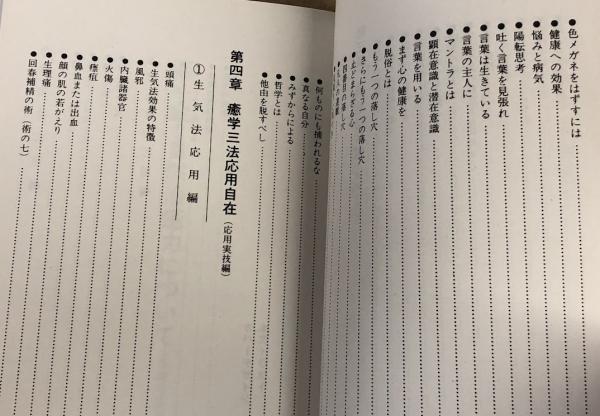 ●色メガネをはずすには
●健康への効果
●悩みと病気
●陽転思考
●吐く言葉を見張れ
●言葉は生きている
●言葉の主人に
●マントラとは
●顕在意識と潜在意識
●言葉を用いる
●まず心の健康を
●脱俗とは
●もう一つの落し穴
●さらにもう一つの落し穴
●止どまらざる心
●四番目の落し穴
●何ものにも捕われるな
●真なる自分
●みずからによる
●哲学とは
●他由を脱すべし
第四章 癒学三法応用自在(応用実技編)
①生気法応用編
●頭痛
●生気法効果の特徴
●風邪
●内臓諸器官
●火傷
●瘡疽
●鼻血または出血
●顔の肌の若がえり
●生理痛
●回春補精の術(術の七)